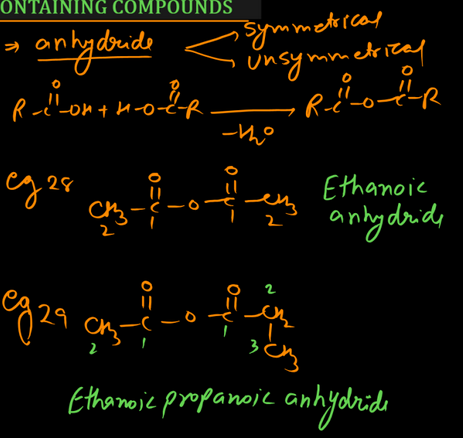 ONTAINING COMPOUNDS
⇒ anhydride symmetrical
unsymmetrical
R-C(=O)-OH + H-O-C(=O)-R → -H₂O R-C(=O)-O-C(=O)-R
eg 28 CH₃-C(=O)-O-C(=O)-CH₃ Ethanoic
2 1 1 2 anhydride
eg 29 CH₃-C(=O)-O-C(=O)-CH₂
2 1 1 2
3 CH₃
Ethanoic propanoic anhydride